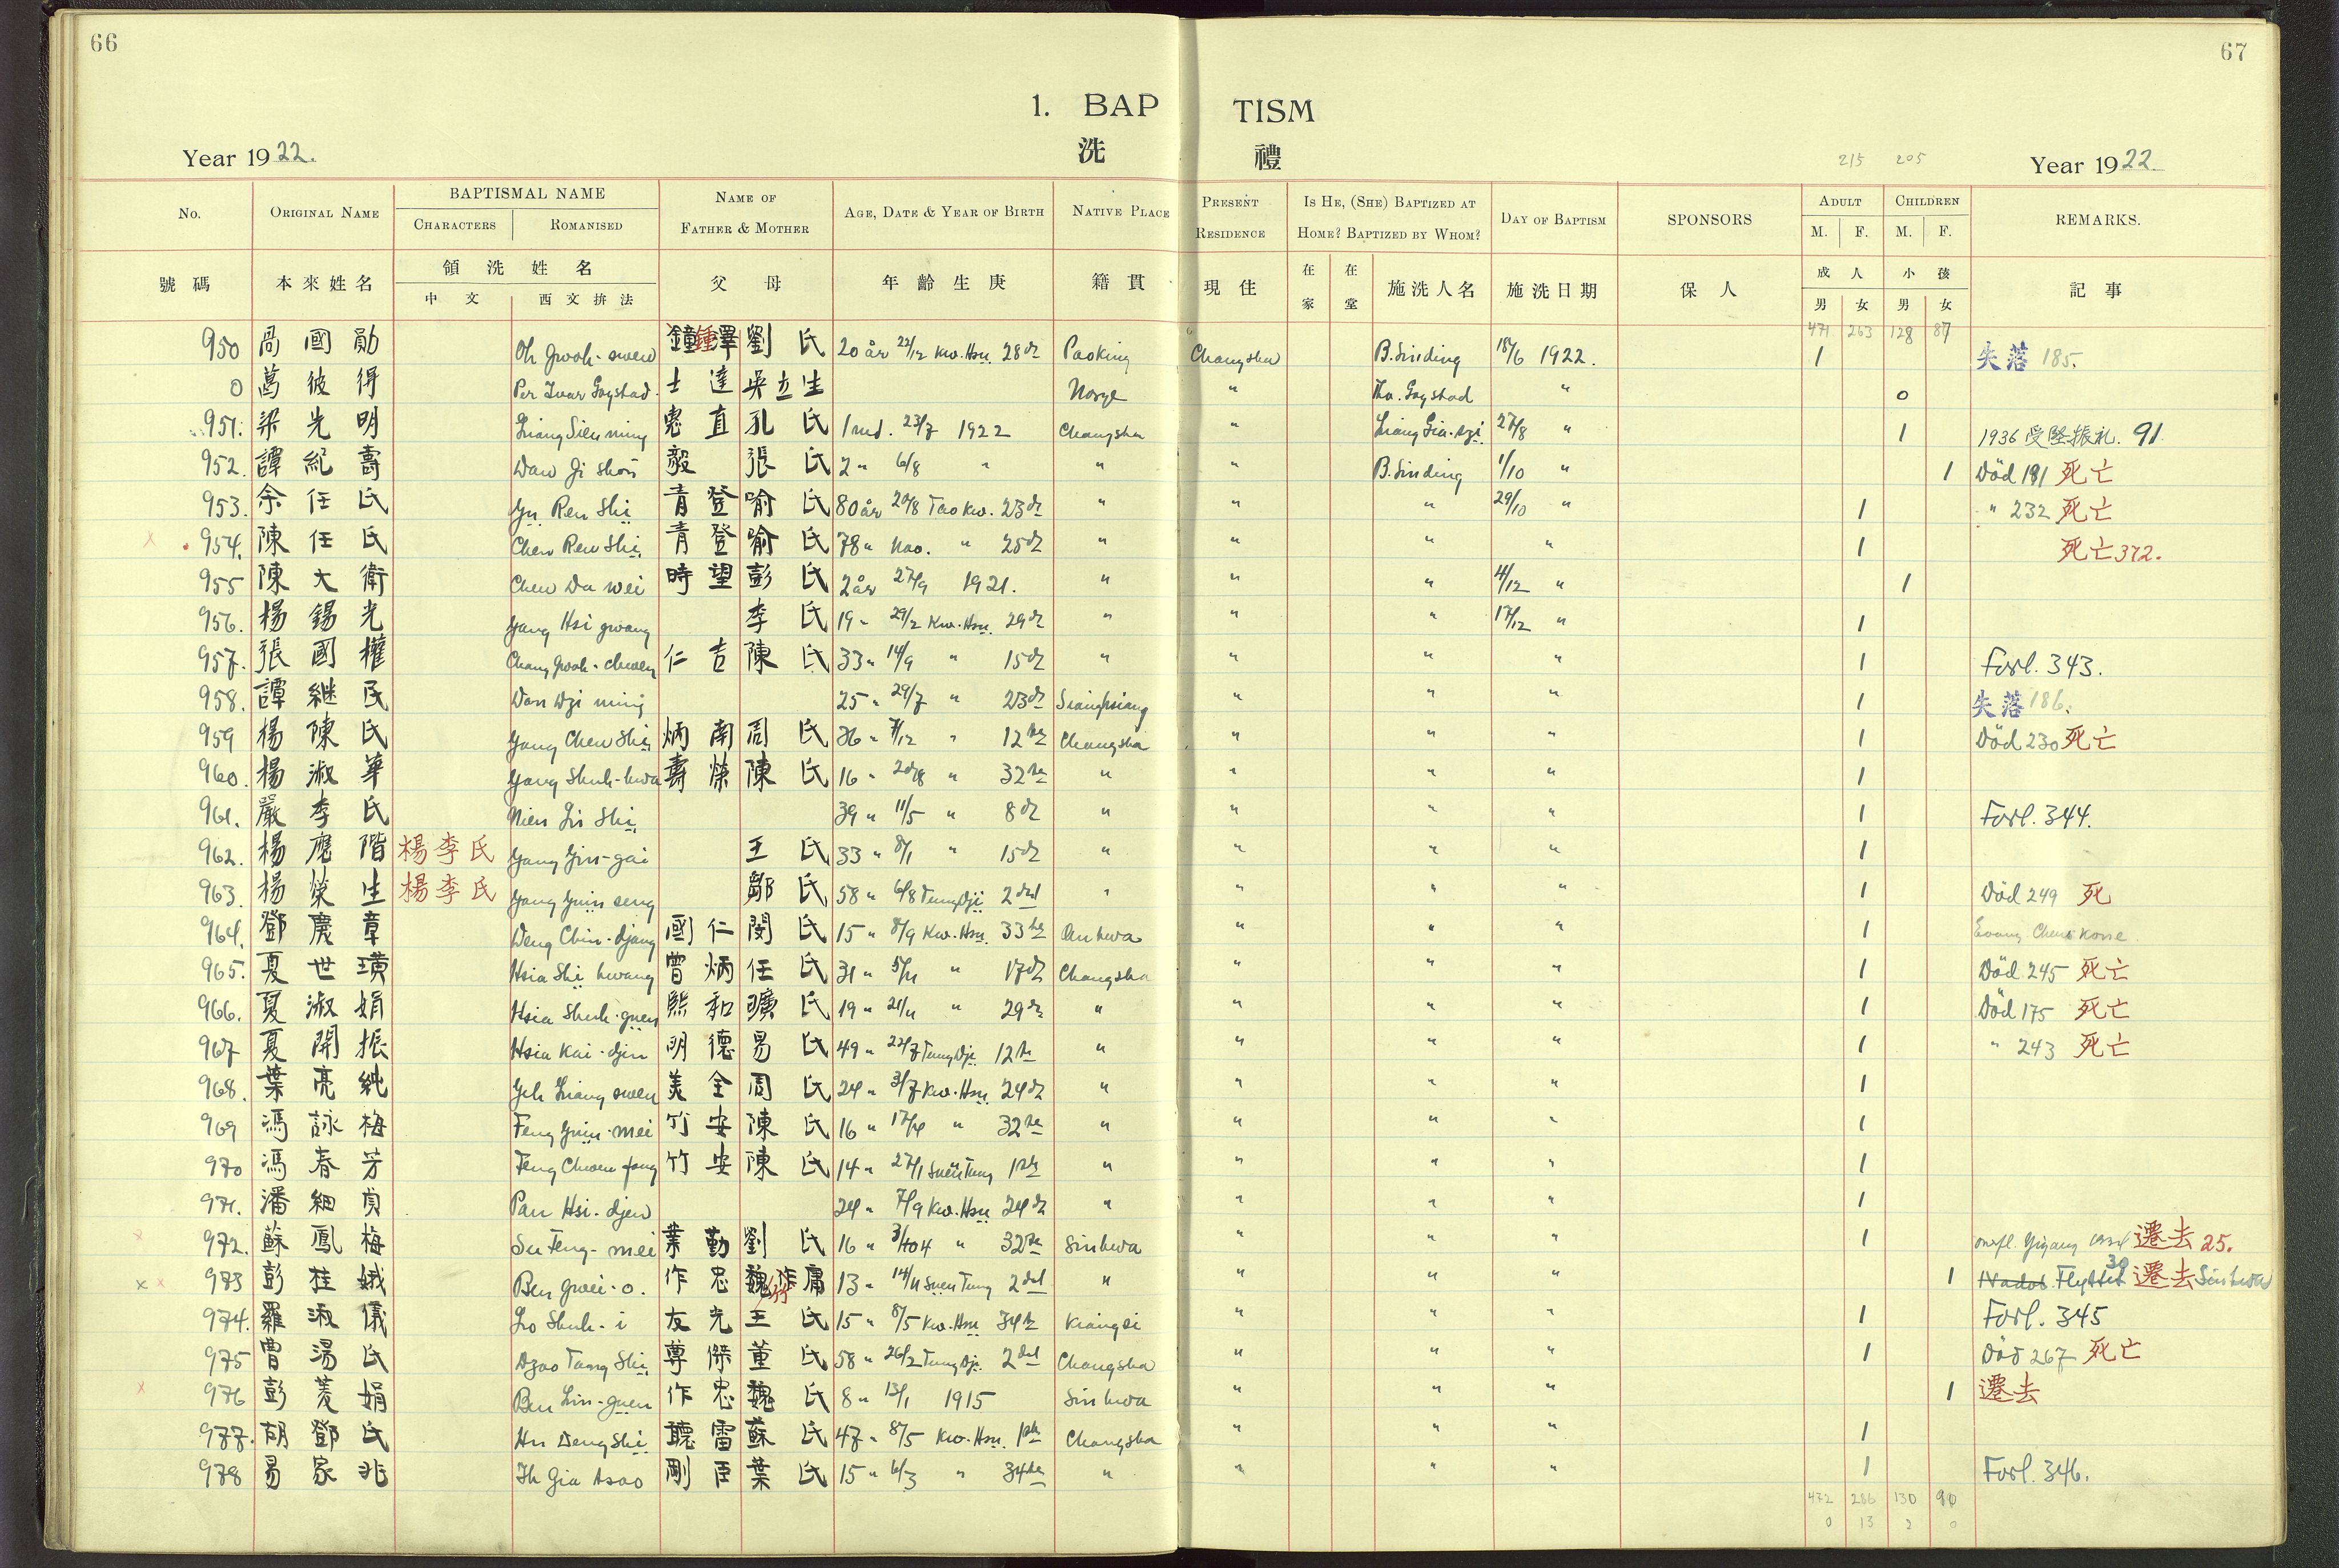 66
67
1. BAP TISM
洗 禮
Year 1922.
215 205
Year 1922
No. ORIGINAL NAME BAPTISMAL NAME CHARACTERS ROMANISED NAME OF FATHER & MOTHER AGE, DATE & YEAR OF BIRTH NATIVE PLACE PRESENT RESIDENCE IS HE, (SHE) BAPTIZED AT HOME? BAPTIZED BY WHOM? DAY OF BAPTISM SPONSORS ADULT M. F. CHILDREN M. F. REMARKS.
號碼 本來姓名 領洗姓名 中文 西文拚法 父母 年齡生庚 籍貫 現住 在家 在堂 施洗人名 施洗日期 保人 成人 男 女 小孩 男 女 記事
471 263 128 87
950 國勛 Oh Gwoh-swen 劉氏 20 år 22/12 Kw.Hsü 28de Paoking Changsha B. Sinding 18/6 1922. 1 失落 185.
0 葛彼得 Per Ivar Gogstad 士達 吳立生 Norge " Th. Gogstad " 0
951. 梁先明 Liang Sien ming 惠直 孔氏 1 md. 23/7 1922 Changsha " Liang Gia-dzi 27/8 " 1 1936 受堅振礼. 91
952. 譚紀壽 Dan Ji Shou 毅 張氏 2 " 6/8 " " " B. Sinding 1/10 " 1 Död 181 死亡
953. 余任氏 Yü Ren Shi 青登 喻氏 80 år 20/8 Tao Kw. 23de " " " 29/10 " 1 " 232 死亡
954. 陳任氏 Chen Ren Shi 青登 喻氏 78 " " 25de " " " " 1 死亡 372.
955 陳大衛 Chen Da wei 時望 彭氏 2 år 27/9 1921. " " " 4/12 " 1
956. 楊錫光 Yang Hsi gwang 李氏 19 " 29/2 Kw.Hsü 29de " " " 17/12 " 1
957. 張國權 Chang Gwoh-chuen 仁吉 陳氏 33 " 14/9 " 15de " " " " 1 Forl. 343.
958. 譚継民 Dan Dzi ming 25 " 29/7 " 23de Siangsiang " " " 1 失落 186.
959 楊陳氏 Yang Chen Shi 炳南 周氏 36 " 7/12 " 12te Changsha " " " 1 Död 230 死亡
960. 楊淑華 Yang Shuh-hwa 壽榮 陳氏 16 " 20/8 " 32te " " " " 1
961. 嚴李氏 Nien Li Shi 39 " 11/5 " 8de " " " " 1 Forl. 344.
962. 楊應階 楊李氏 Yang Yin-gai 王氏 33 " 8/1 " 15de " " " " 1
963. 楊榮生 楊李氏 Yang Yuin seng 鄒氏 58 " 6/8 Tung Dji 2det " " " " 1 Död 249 死
964. 鄧慶章 Deng Chin-djang 國仁 閔氏 15 " 8/9 Kw.Hsü 33te Anhwa " " " 1
965. 夏世璜 Hsia Shi hwang 曾炳 任氏 31 " 5/11 " 17de Changsha " " " 1 Död 245 死亡
966. 夏淑娟 Hsia Shuh-guen 熙和 曠氏 19 " 21/11 " 29de " " " " 1 Död 175 死亡
967 夏開振 Hsia Kai-djin 明德 易氏 49 " 22/7 Tung Dji 12te " " " " 1 " 243 死亡
968. 葉亮純 Yeh Liang swen 美全 周氏 24 " 3/7 Kw.Hsü 24de " " " " 1
969 馮詠梅 Feng Yuin-mei 竹安 陳氏 16 " 17/4 " 32te " " " " 1
970 馮春芳 Feng Chuen fang 竹安 陳氏 14 " 27/1 Suen Tung 1ste " " " " 1
971. 潘細貞 Pan Hsi-djen 24 " 7/9 Kw.Hsü 24de " " " " 1
972. 蘇鳳梅 Su Feng-mei 業勤 劉氏 16 " " 32te Sinhwa " " " 1 Yiyang 遷去 25.
973 彭桂娥 Ben Gwei-o. 作忠 魏 13 " 14/11 Suen Tung 2det " " " " 1 Flyttet 30 遷去 Sinhwa
974. 羅淑儀 Lo Shuh-i 友光 王氏 15 " 8/5 Kw.Hsü 34te Kiangsi " " " 1 Forl. 345
975 曹湯氏 Dzao Tang Shi 尊傑 董氏 58 " 26/2 Tung Dji 2det Changsha " " " 1 Död 267 死亡
976 彭菱娟 Ben Lin-guen 作忠 魏氏 8 " 13/1 1915 Sinhwa " " " 1 遷去
977. 胡鄧氏 Hu Deng Shi 聽雷 蘇氏 47 " 8/5 Kw.Hsü 1ste Changsha " " " 1
978 易家兆 Ih Gia dsao 剛臣 葉氏 15 " 6/3 " 34te " " " " 1 Forl. 346.
472 286 130 90
0 13 2 0